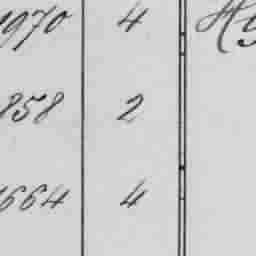 1970 4
858 2
1664 4